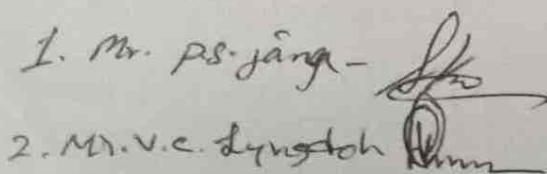 1. Mr. P.S. jãnga -
2. Mr. V.C. Lyngdoh